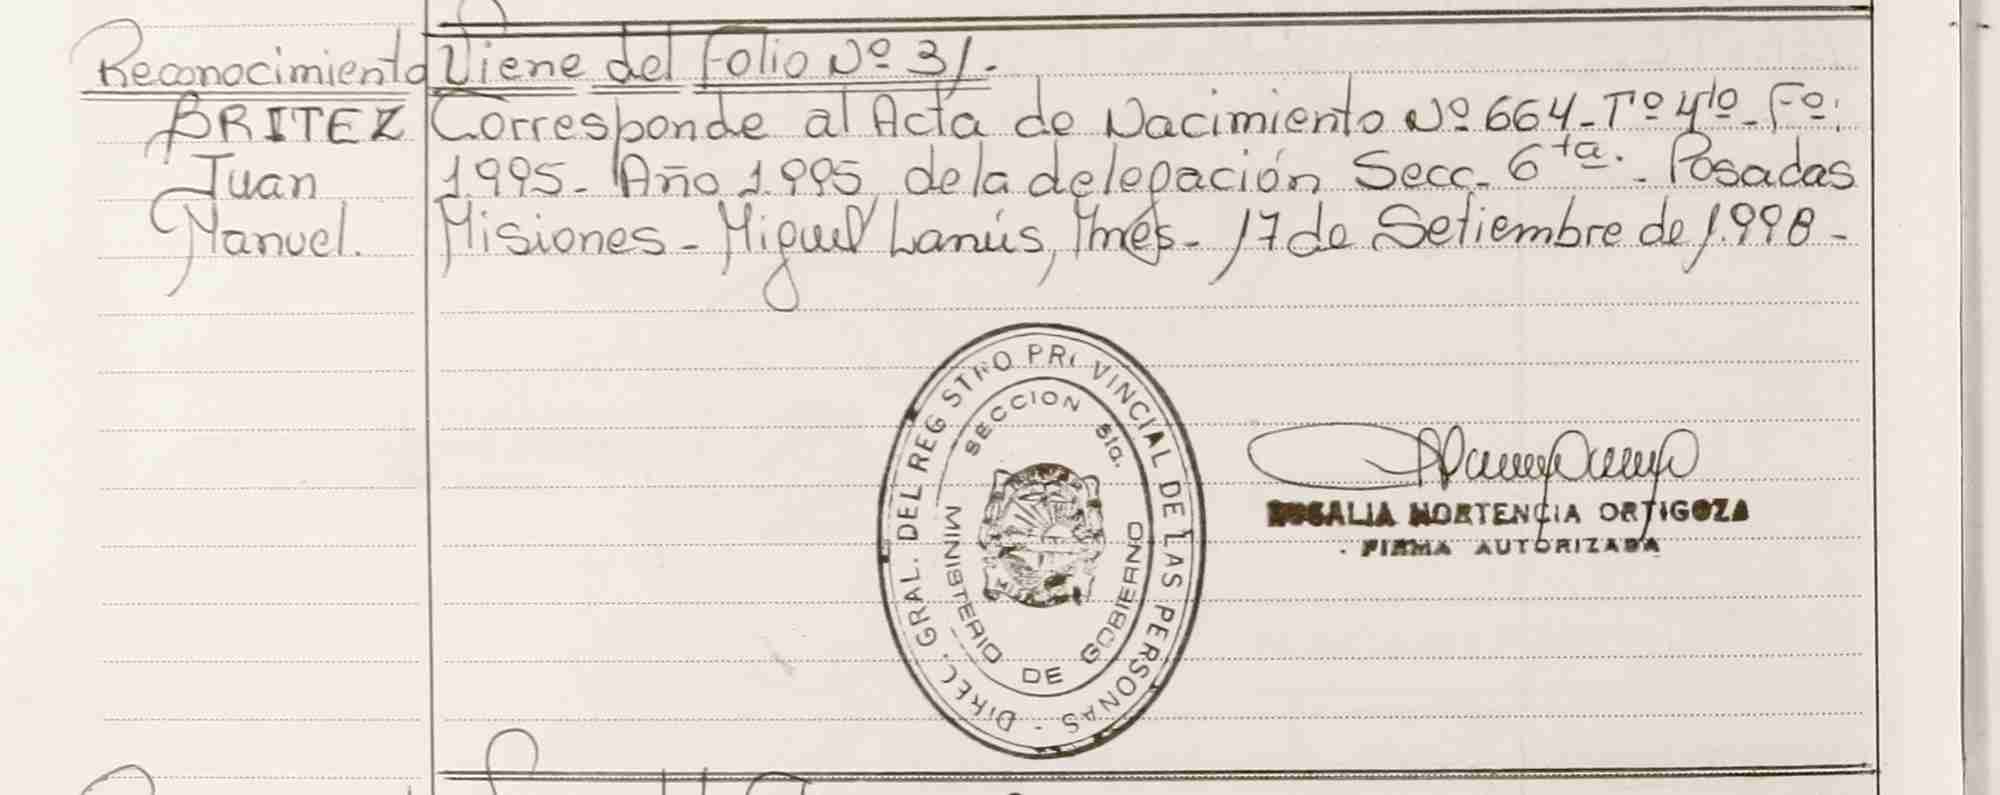 Reconocimiento Viene del Folio Nº 31.
BRITEZ Corresponde al Acta de Nacimiento Nº 664-Tº 4to-Fº:
Juan 1.995- Año 1.995 de la delegación Secc. 6ta.- Posadas
Manuel. Misiones- Miguel Lanús, Mnes- 17 de Setiembre de 1.998-
DIREC. GRAL. DEL REGISTRO PROVINCIAL DE LAS PERSONAS -
SECCION 6ta.
MINISTERIO DE GOBIERNO
ROSALIA HORTENCIA ORTIGOZA
FIRMA AUTORIZADA